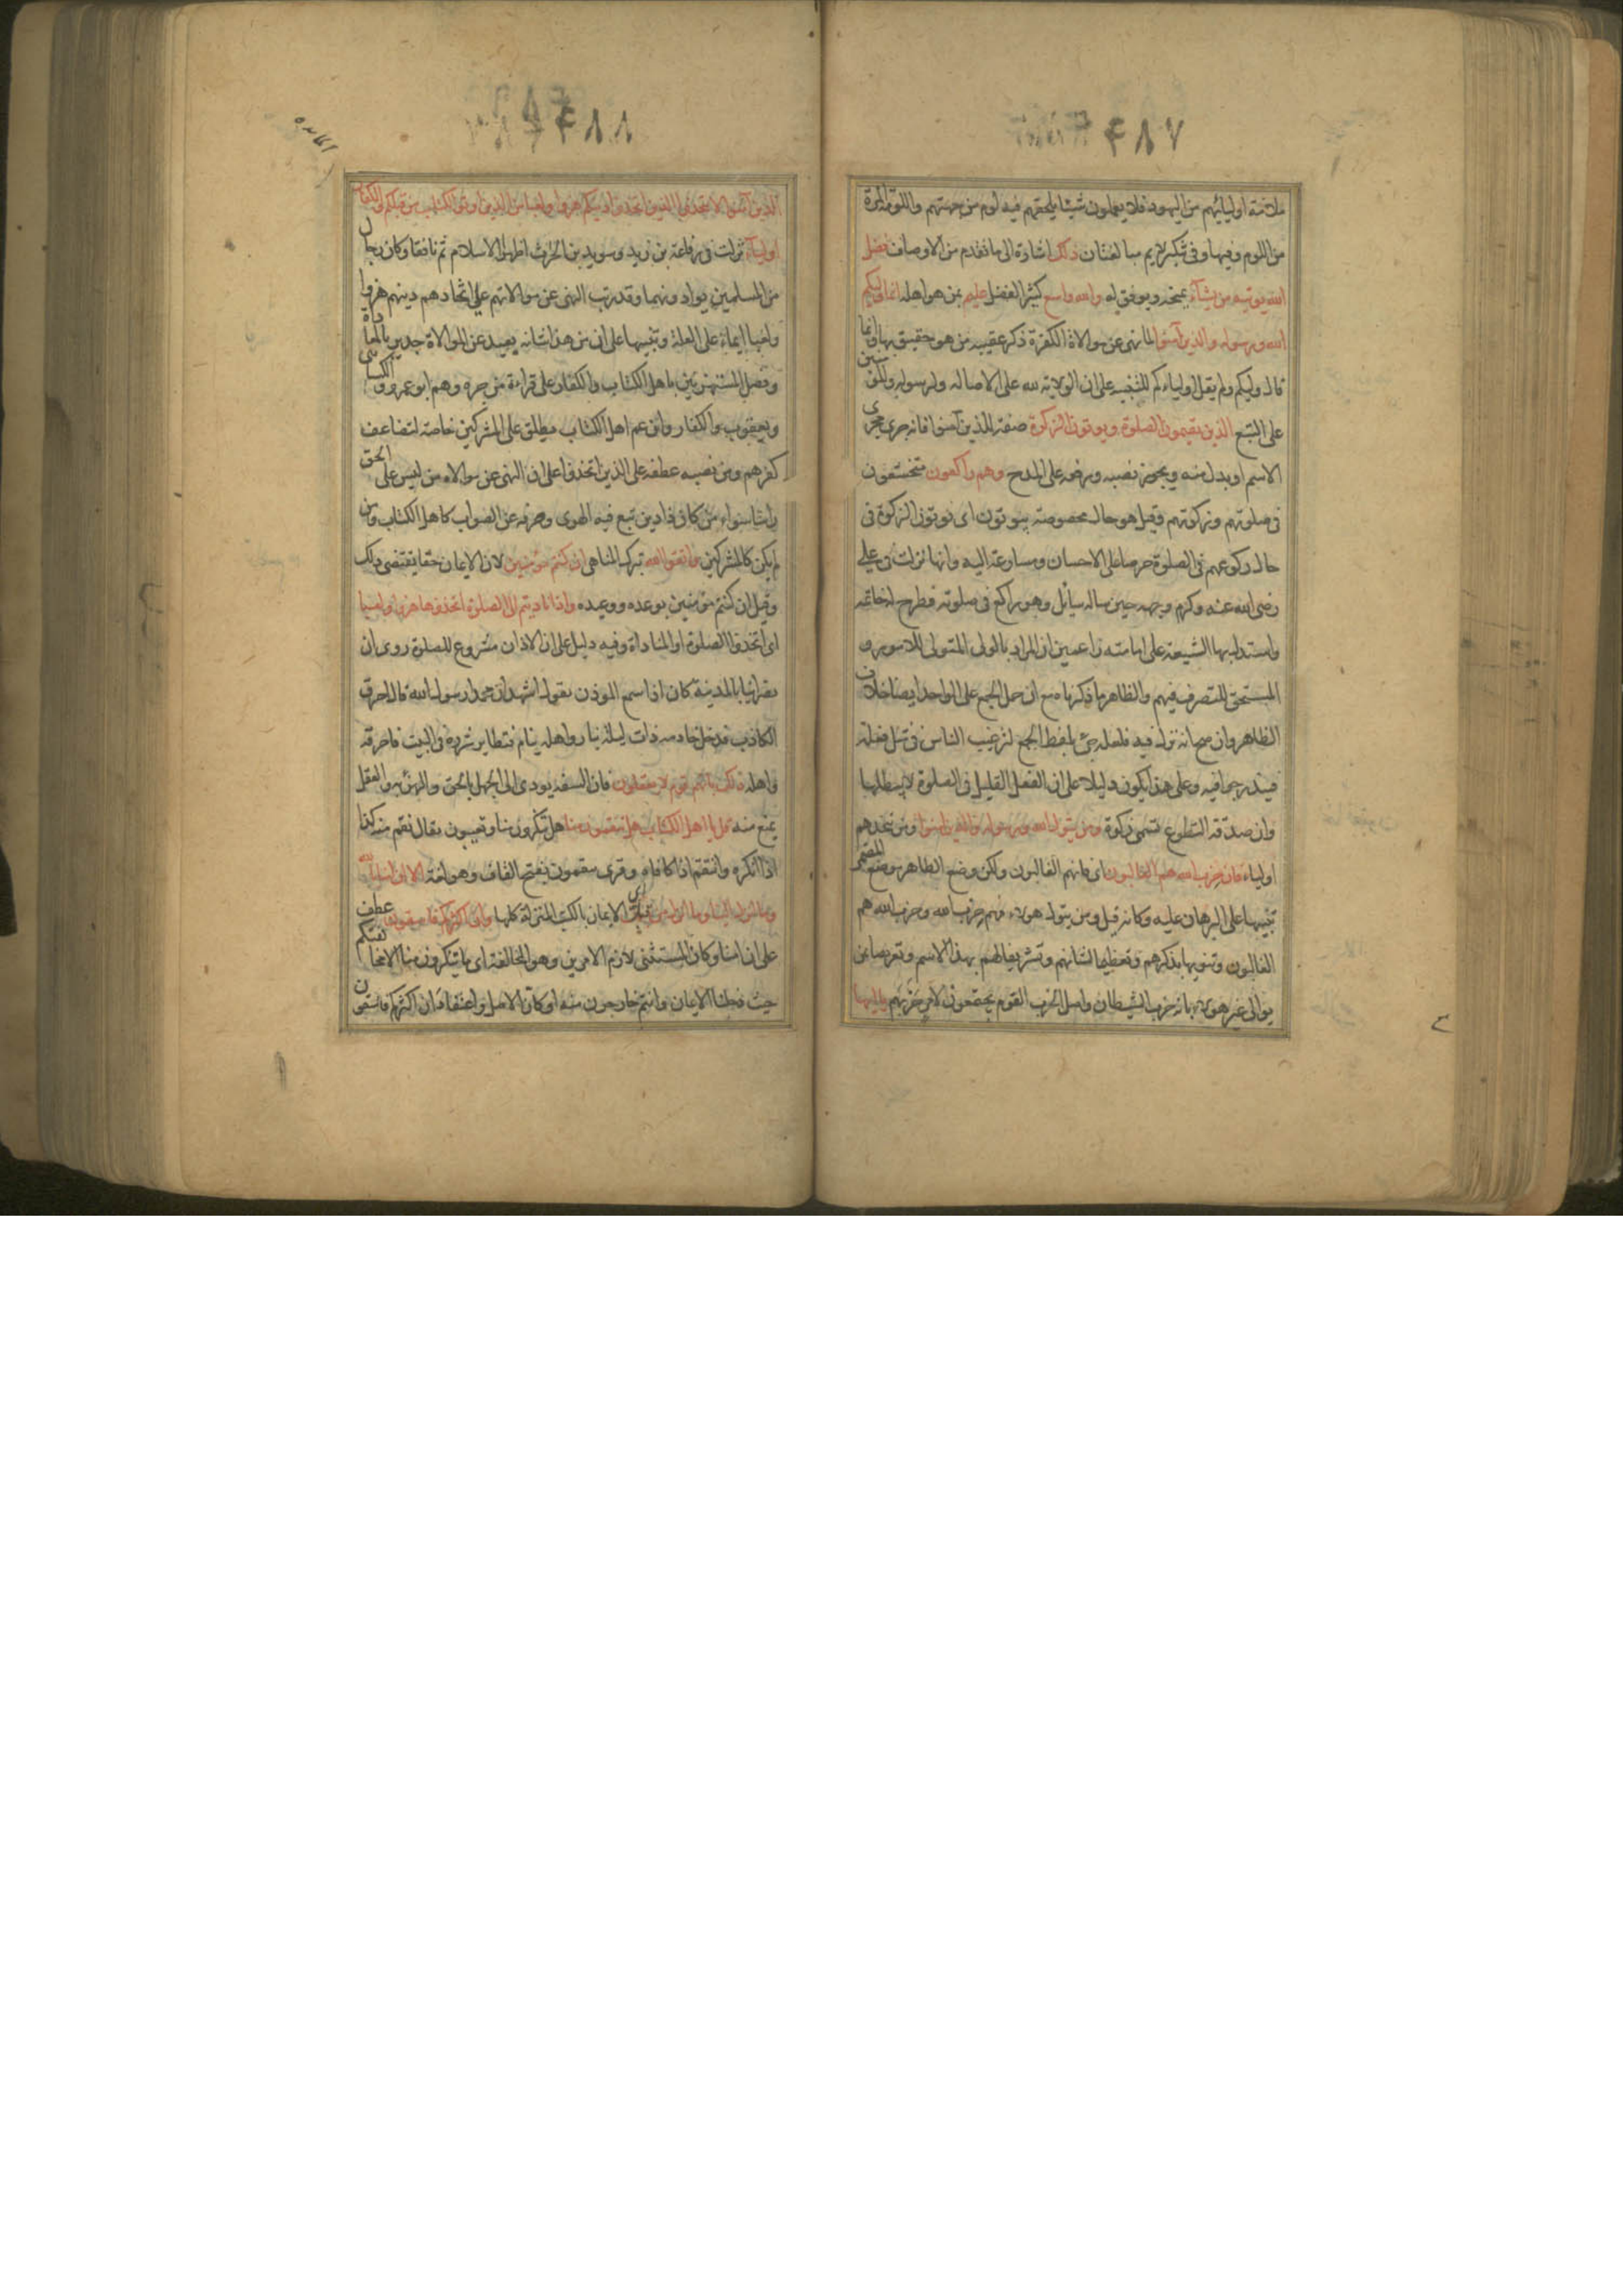 ٢٨٧
ملامة اوليائهم من اليهود فلا يعملون شيئا يلحقهم فيه لوم من جهتهم واللومة المرة
من اللوم وفيها وفى تنكير لايم مبالغتان ذلك اشارة الى ما تقدم من الاوصاف فضل
الله يوتيه من يشآء يمنحه ويوفق له والله واسع كثير الفضل عليم بمن هو اهله انما وليكم
الله ورسوله والذين آمنوا لما نهى عن موالاة الكفرة ذكر عقيبه من هو حقيق بها وانما
قال وليكم ولم يقل اولياءكم للتنبيه على ان الولاية لله على الاصالة ولرسوله وللمؤمنين
على التبع الذين يقيمون الصلوة ويوتون الزكوة صفة للذين آمنوا فانه جرى مجرى
الاسم او بدل منه ويجوز نصبه ورفعه على المدح وهم راكعون متخشعون
فى صلوتهم وزكوتهم وقيل هو حال مخصوصة بيوتون اى يوتون الزكوة فى
حال ركوعهم فى الصلوة حرصا على الاحسان ومسارعة اليه وانها نزلت فى على
رضى الله عنه وكرم وجهه حين ساله سائل وهو راكع فى صلوته فطرح له خاتمه
واستدل بها الشيعة على امامته زاعمين ان المراد بالولى المتولى للامور و
المستحق للتصرف فيهم والظاهر ما ذكرناه مع ان حمل الجمع على الواحد ايضا خلاف
الظاهر وان صح انه نزل فيه فلعله جئ بلفظ الجمع لترغيب الناس فى مثل فعله
فيندرجوا فيه وعلى هذا يكون دليلا على ان الفعل القليل فى الصلوة لا يبطلها
وان صدقة التطوع تسمى زكوة ومن يتول الله ورسوله والذين امنوا ومن يتخذهم
اولياء فان حزب الله هم الغالبون اى فانهم الغالبون ولكن وضع الظاهر موضع المضمر
تنبيها على البرهان عليه وكانه قيل ومن يتول هولاء فهم حزب الله وحزب الله هم
الغالبون وتنويها بذكرهم وتعظيما لشانهم وتشريفا لهم بهذا الاسم وتعريضا بمن
يوالى غير هولاء بانه حزب الشيطان واصل الحزب القوم يجتمعون لامر حزبهم يا ايها
٢٨٨
الذين آمنوا لا تتخذوا الذين اتخذوا دينكم هزوا ولعبا من الذين اوتوا الكتاب من قبلكم والكفار
اولياء نزلت فى رفاعة بن زيد وسويد بن الحرث اظهرا الاسلام ثم نافقا وكان رجال
من المسلمين يوادونهما وقد رتب النهى عن موالاتهم على اتخاذهم دينهم هزوا
ولعبا ايماء على العلة وتنبيها على ان من هذا شانه بعيد عن الموالاة جدير بالمعاداة
وفصل المستهزئين باهل الكتاب والكفار على قراءة من جره وهم ابو عمرو والكسائى
ويعقوب والكفار وان عم اهل الكتاب يطلق على المشركين خاصة لتضاعف
كفرهم ومن نصبه عطفه على الذين اتخذوا على ان النهى عن موالاة من ليس على الحق
راسا سواء من كان ذا دين تبع فيه الهوى وحرفه عن الصواب كاهل الكتاب ومن
لم يكن كالمشركين واتقوا الله بترك المناهى ان كنتم مؤمنين لان الايمان حقا يقتضى ذلك
وقيل ان كنتم مؤمنين بوعده ووعيده واذا ناديتم الى الصلوة اتخذوها هزوا ولعبا
اى اتخذوا الصلوة او المناداة وفيه دليل على ان الاذان مشروع للصلوة روى ان
نصرانيا بالمدينة كان اذا سمع الموذن يقول اشهد ان محمدا رسول الله قال احرق
الكاذب فدخل خادمه ذات ليلة بنار واهله ينام فتطاير شرره فى البيت فاحرقه
واهله ذلك بانهم قوم لا يعقلون فان السفه يودى الى الجهل بالحق والهزء به والعقل
يمنع منه قل يا اهل الكتاب هل تنقمون منا هل تنكرون منا وتعيبون يقال نقم منه كذا
اذا انكره وانتقم اذا كافاه وقرى تنقمون بفتح القاف وهو لغة الا ان امنا بالله
وما انزل الينا وما انزل من قبل اى الايمان بالكتب المنزلة كلها وان اكثركم فاسقون عطف
على ان امنا وكان المستثنى لازم الامرين وهو المخالفة اى ما تنكرون منا الا مخالفتكم
حيث دخلنا الايمان وانتم خارجون منه او كان الاصل واعتقاد ان اكثركم فاسقون